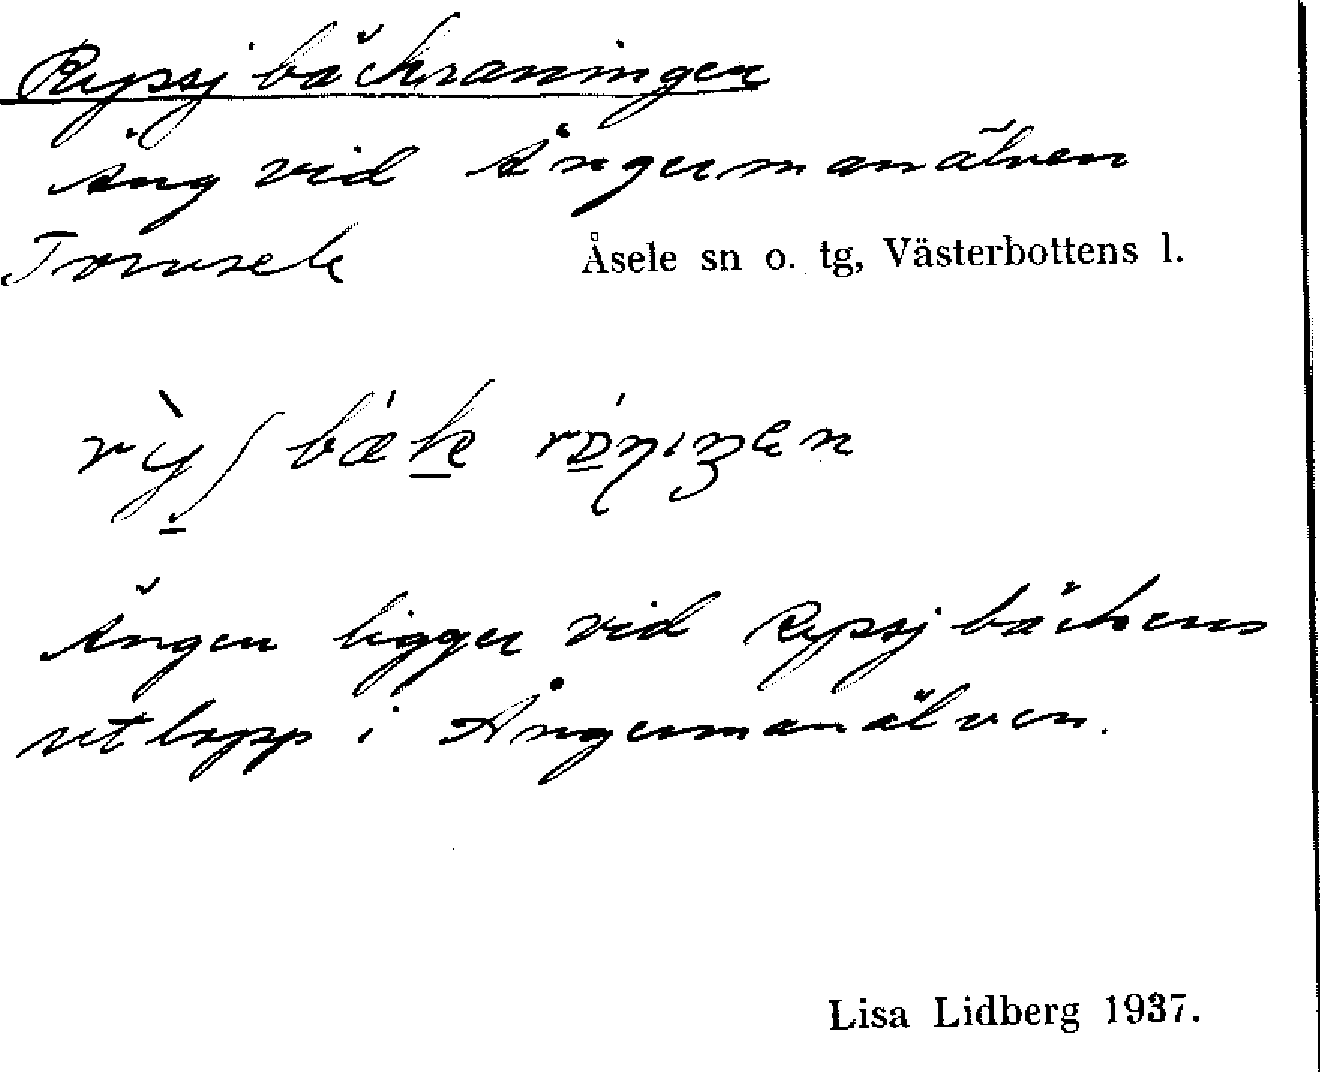 Rypsjbäckraningen
Äng vid Ångermanälven
Torvsele Åsele sn o. tg, Västerbottens l.
Ängen ligger vid Rypsjbäckens
utlopp i Ångermanälven.
Lisa Lidberg 1937.